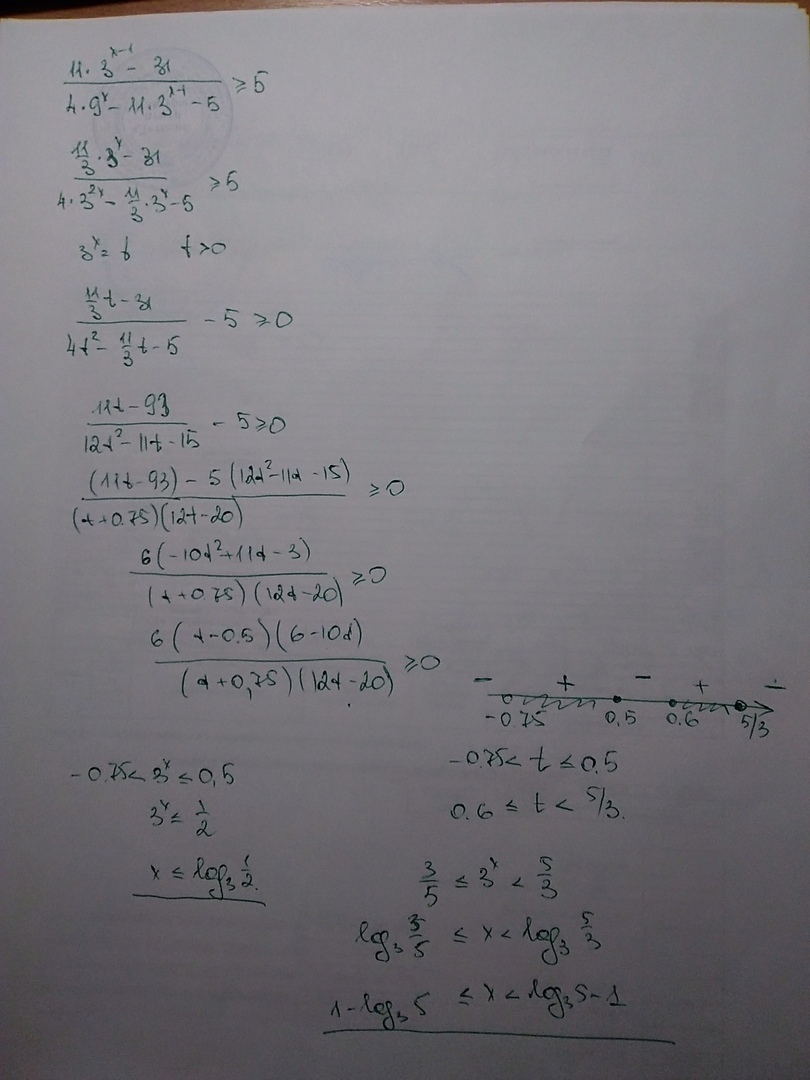 (11·3^(x-1) - 31)/(4·9^x - 11·3^(x-1) - 5) ≥ 5
(11/3·3^x - 31)/(4·3^(2x) - 11/3·3^x - 5) ≥ 5
3^x = t t > 0
(11/3 t - 31)/(4t² - 11/3 t - 5) - 5 ≥ 0
(11t - 93)/(12t² - 11t - 15) - 5 ≥ 0
((11t - 93) - 5(12t² - 11t - 15))/((t + 0.75)(12t - 20)) ≥ 0
6(-10t² + 11t - 3)/((t + 0.75)(12t - 20)) ≥ 0
6(t - 0.5)(6 - 10t)/((t + 0,75)(12t - 20)) ≥ 0
- + - + -
-0.75 0,5 0.6 5/3
-0.75 < t ≤ 0.5
0.6 ≤ t < 5/3.
-0.75 < 3^x ≤ 0,5
3^x ≤ 1/2
x ≤ log₃ 1/2.
3/5 ≤ 3^x < 5/3
log₃ 3/5 ≤ x < log₃ 5/3
1 - log₃ 5 ≤ x < log₃ 5 - 1